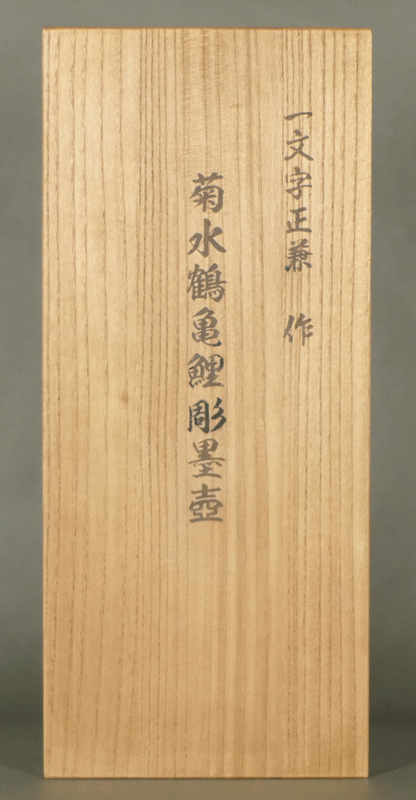 一文字正兼 作
菊水鶴亀鯉彫墨壺